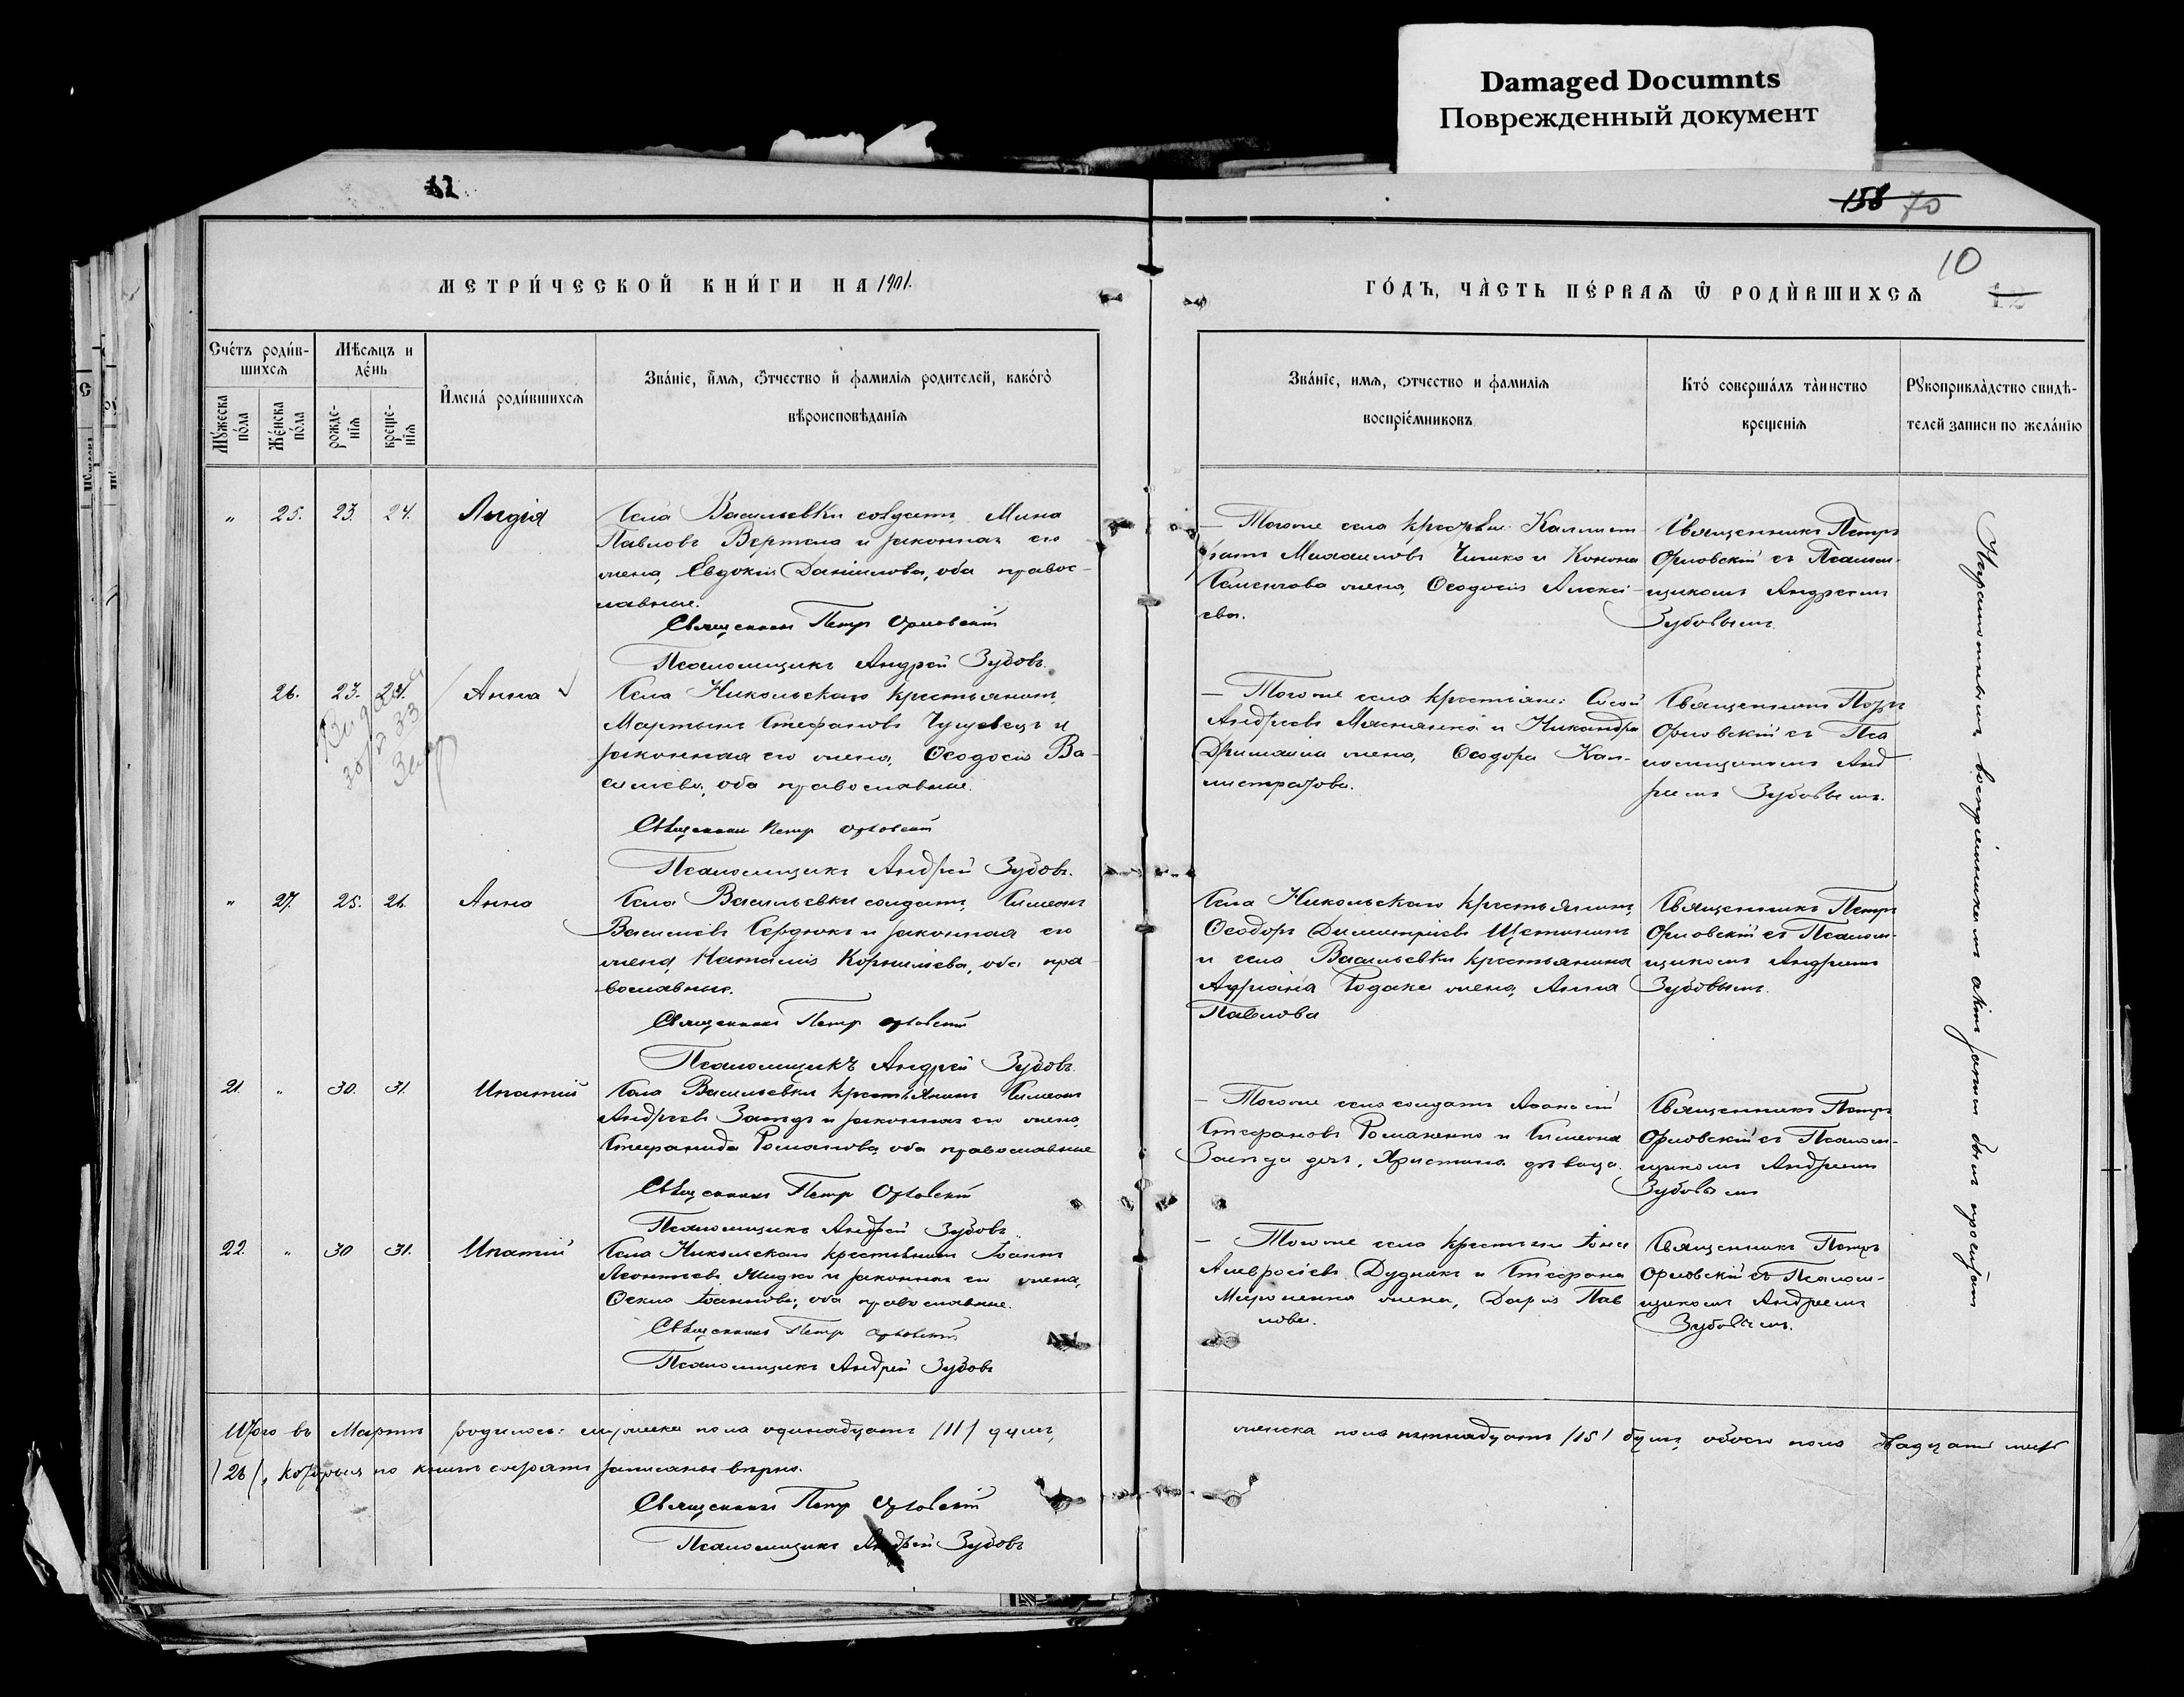 Damaged Documnts
Поврежденный документ
62
158 70
10
МЕТРИ́ЧЕСКОЙ КНИ́ГИ НА 1901.
ГО́ДЪ, ЧА̀СТЬ ПЕ́РВАѦ Ѿ РОДЍВШИХСѦ
Счéтъ роди́в-
шихсѧ
Мѣсѧцъ и
дéнь
Мꙋ́жеска
пóла
Жéнска
пóла
рожде-
нїѧ
креще-
нїѧ
И҆́мена́ роди́вшихсѧ
Звáнїе, и҆́мѧ, ѻ҆́тчество и҆ фамилїѧ родителей, какóгѡ
вѣроисповѣданїѧ
Звáнїе, имѧ, ѻтчество и фамилїѧ
воспрїéмниковъ
Ктó совершáлъ тàинство
крещенїѧ
Рꙋкоприклàдство свидѣ-
телей записи по желáнїю
" 25. 23. 24. Лидія
Села Васильевки солдатъ, Мина
Павловъ Вертела и законная его
жена, Евдокія Даніилова, оба правос-
лавные.
Священникъ Петръ Орловскій
Псаломщикъ Андрей Зубовъ.
— Того же села Каллист-
ратъ Чишко и Конона
жена, Ѳеодосія Алексі-
ева.
Священникъ Петръ
Орловскій съ Псалом-
щикомъ Андреемъ
Зубовымъ.
26. 23. 24. Анна
Села Никольскаго крестьянинъ,
Мартынъ Стефановъ и
законная его жена, Ѳеодосія Ва-
сильева, оба православные.
Священникъ Петръ Орловскій
Псаломщикъ Андрей Зубовъ.
— Того же села крестьяне: Сысой
Андреевъ и Никандра
жена, Ѳеодора Кал-
листратова.
Священникъ Петръ
Орловскій съ Пса
ломщикомъ Анд
реемъ Зубовымъ.
" 27. 25. 26. Анна
Села Васильевки солдатъ, Симеонъ
Васильевъ Сердюкъ и законная его
жена, Наталія Корнильева, оба пра-
вославные.
Священникъ Петръ Орловскій
Псаломщикъ Андрей Зубовъ.
Села Никольскаго крестьянинъ,
Ѳеодоръ Димитріевъ Щетининъ
и села Васильевки крестьянина
Адріана Родаки жена, Анна
Павлова
Священникъ Петръ
Орловскій съ Псалом-
щикомъ Андреемъ
Зубовымъ.
21. " 30. 31. Ипатій
Села Васильевки крестьянинъ Симеонъ
Андреевъ и законная его жена,
Стефанида Романова, оба православные
Священникъ Петръ Орловскій
Псаломщикъ Андрей Зубовъ
— Того же села солдатъ Аѳанасій
Стефановъ Романенко и Симеона
Христина дѣвица.
Священникъ Петръ
Орловскій съ Псалом-
щикомъ Андреемъ
Зубовымъ
22. " 30 31. Ипатій
Села Никольскаго крестьянинъ Іоаннъ
Леонтьевъ и законная его жена,
Ѳекла Іоаннова, оба православные.
Священникъ Петръ Орловскій
Псаломщикъ Андрей Зубовъ
— Того же села крестьяне Іона
Амвросіевъ Дудникъ и Стефана
Мироненка жена, Дарія Пав
лова.
Священникъ Петръ
Орловскій съ Псалом-
щикомъ Андреемъ
Зубовымъ.
Неграмотныя воспріемники актъ записи были прочитаны
Итого въ Мартѣ родилось: мужеска пола одинадцать /11/ душъ,
женска пола пятнадцать /15/ душъ, обоего пола двадцать шесть
/26/, которыя по книгѣ записаны вѣрно.
Священникъ Петръ Орловскій
Псаломщикъ Андрей Зубовъ